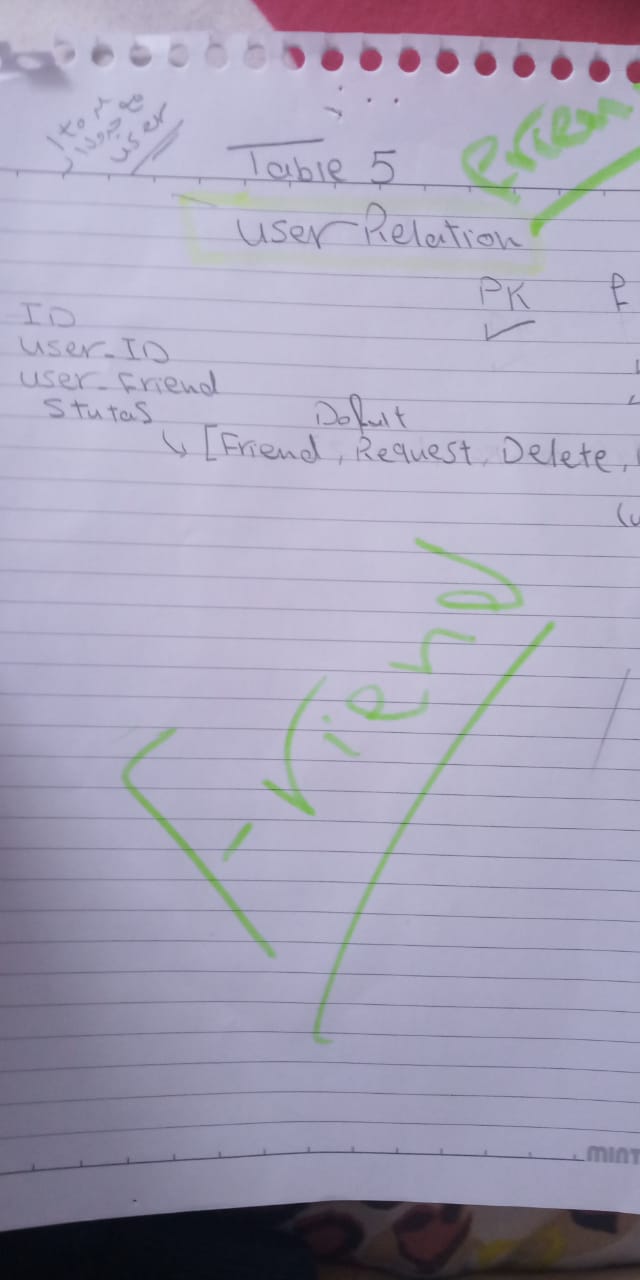 Table 5
User Relation
PK
ID
User-ID
User-Friend
Stutas
Defult
↳ [Friend, Request, Delete,
Friend
MINT